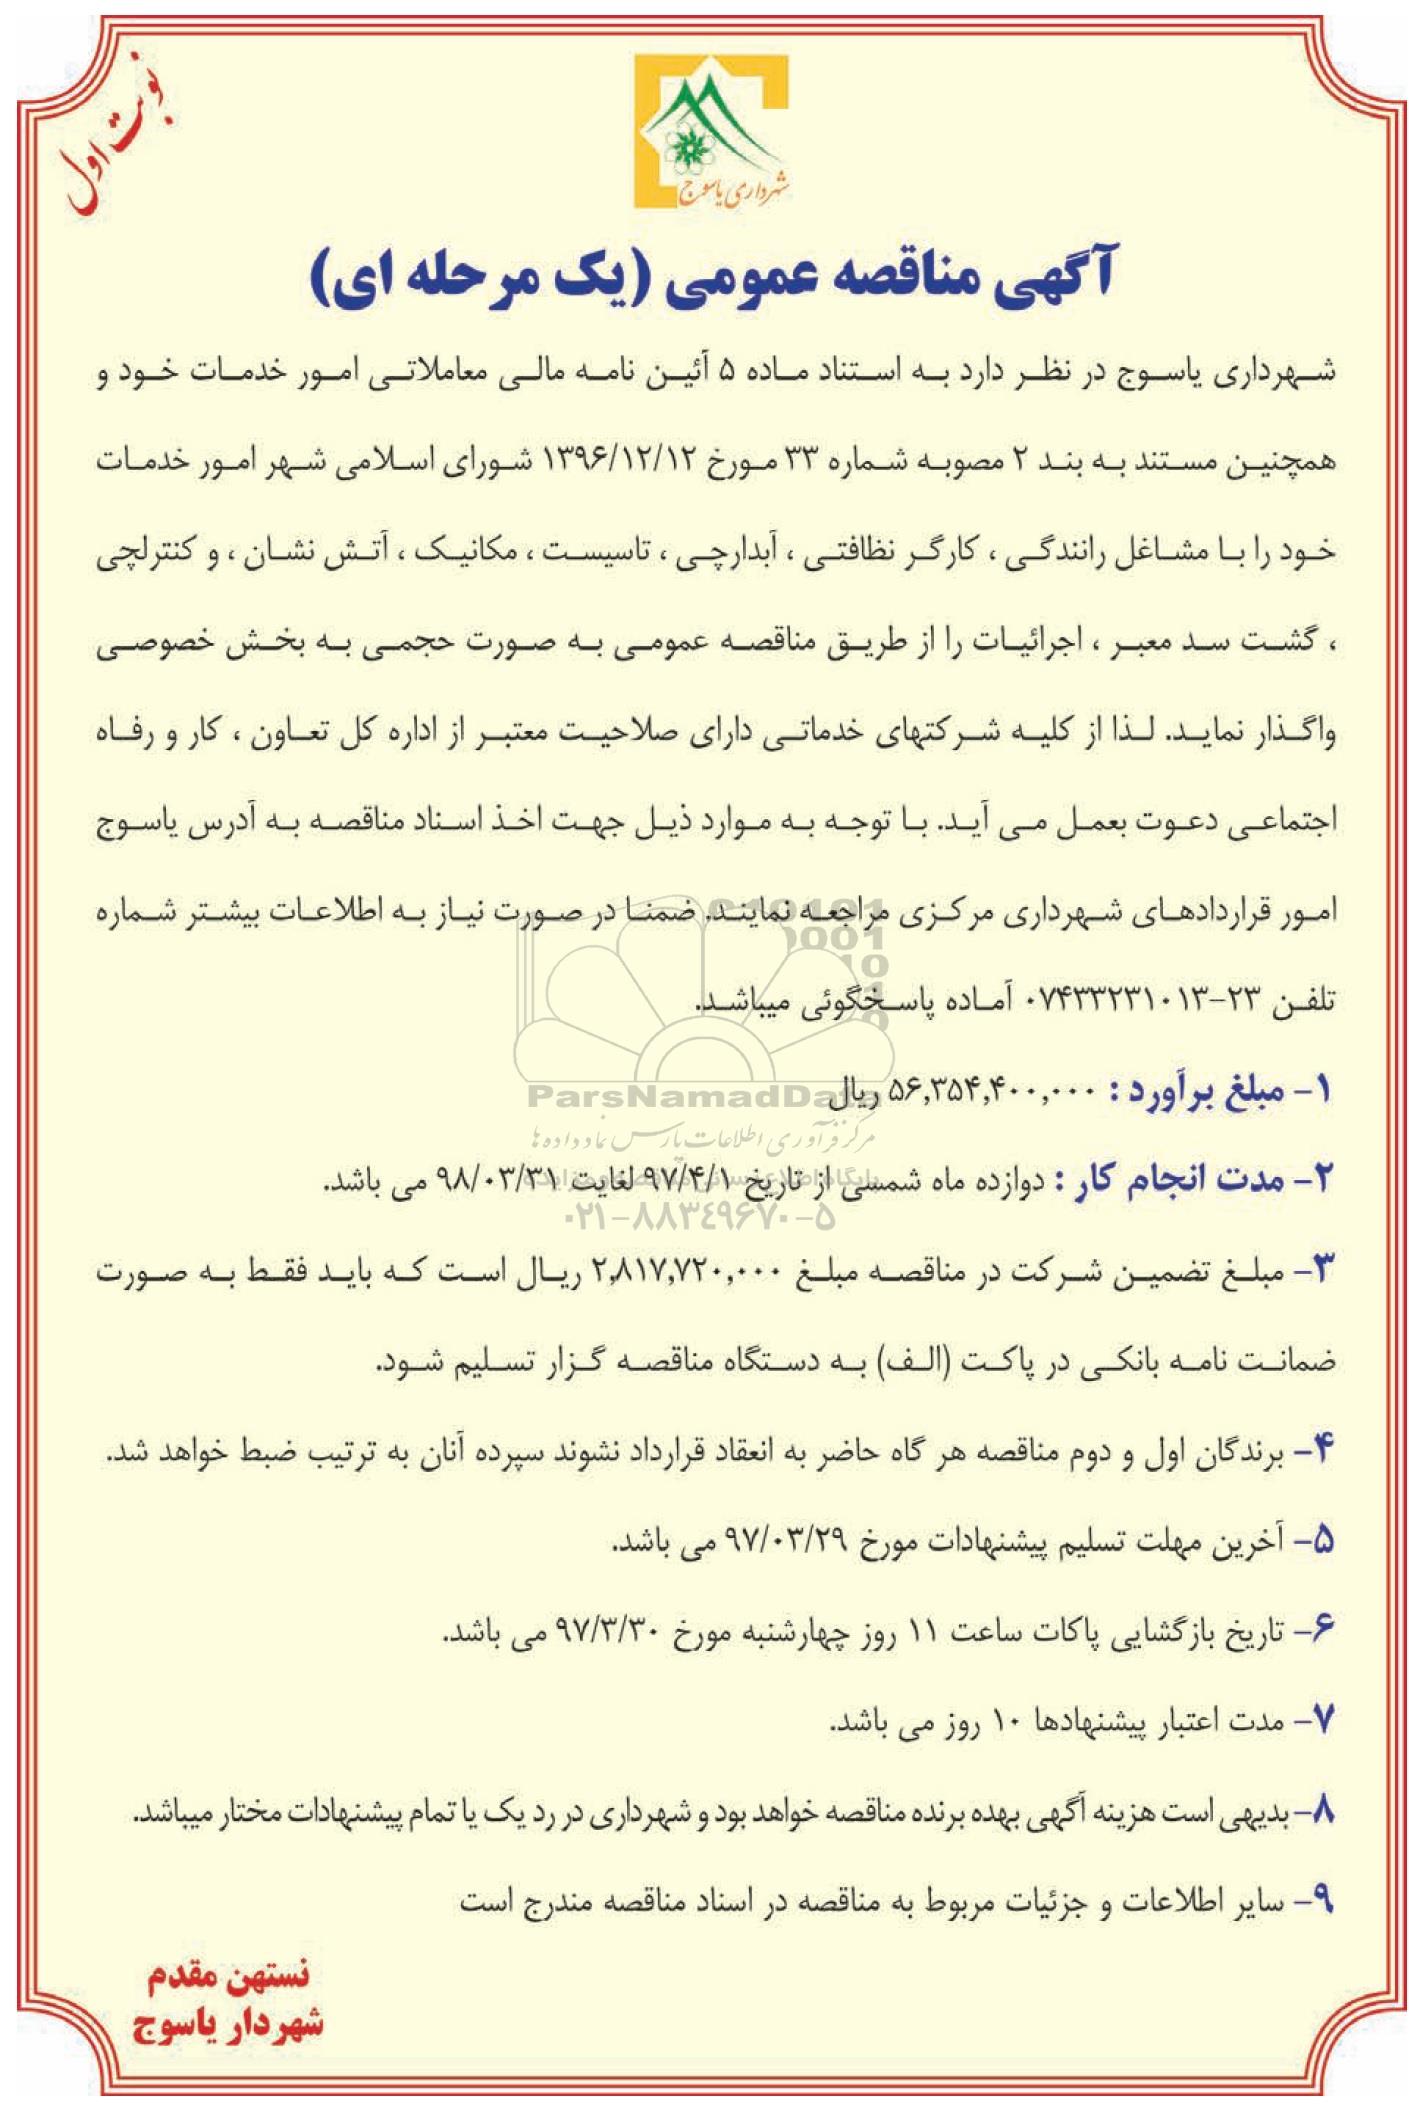 نوبت اول
شهرداری یاسوج
آگهی مناقصه عمومی (یک مرحله ای)
شهرداری یاسوج در نظر دارد به استناد ماده ۵ آئین نامه مالی معاملاتی امور خدمات خود و
همچنین مستند به بند ۲ مصوبه شماره ۳۳ مورخ ۱۳۹۶/۱۲/۱۲ شورای اسلامی شهر امور خدمات
خود را با مشاغل رانندگی ، کارگر نظافتی ، آبدارچی ، تاسیست ، مکانیک ، آتش نشان ، و کنترلچی
، گشت سد معبر ، اجرائیات را از طریق مناقصه عمومی به صورت حجمی به بخش خصوصی
واگذار نماید. لذا از کلیه شرکتهای خدماتی دارای صلاحیت معتبر از اداره کل تعاون ، کار و رفاه
اجتماعی دعوت بعمل می آید. با توجه به موارد ذیل جهت اخذ اسناد مناقصه به آدرس یاسوج
امور قراردادهای شهرداری مرکزی مراجعه نمایند. ضمنا در صورت نیاز به اطلاعات بیشتر شماره
تلفن ۲۳-۰۷۴۳۳۲۳۱۰۱۳ آماده پاسخگوئی میباشد.
۱- مبلغ برآورد : ۵۶,۳۵۴,۴۰۰,۰۰۰ ریال
ParsNamadData
مرکز فرآوری اطلاعات پارس نماد داده ها
۲- مدت انجام کار : دوازده ماه شمسی از تاریخ ۹۷/۴/۱ لغایت ۹۸/۰۳/۳۱ می باشد.
۰۲۱-۸۸۳۴۹۶۷۰-۵
۳- مبلغ تضمین شرکت در مناقصه مبلغ ۲,۸۱۷,۷۲۰,۰۰۰ ریال است که باید فقط به صورت
ضمانت نامه بانکی در پاکت (الف) به دستگاه مناقصه گزار تسلیم شود.
۴- برندگان اول و دوم مناقصه هر گاه حاضر به انعقاد قرارداد نشوند سپرده آنان به ترتیب ضبط خواهد شد.
۵- آخرین مهلت تسلیم پیشنهادات مورخ ۹۷/۰۳/۲۹ می باشد.
۶- تاریخ بازگشایی پاکات ساعت ۱۱ روز چهارشنبه مورخ ۹۷/۳/۳۰ می باشد.
۷- مدت اعتبار پیشنهادها ۱۰ روز می باشد.
۸- بدیهی است هزینه آگهی بهده برنده مناقصه خواهد بود و شهرداری در رد یک یا تمام پیشنهادات مختار میباشد.
۹- سایر اطلاعات و جزئیات مربوط به مناقصه در اسناد مناقصه مندرج است
نستهن مقدم
شهردار یاسوج